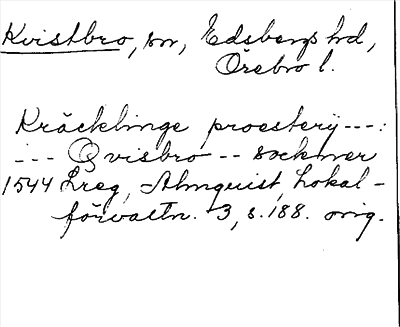 Kvistbro, sn, Edsbergs hd,
Örebro l.
Kräcklinge proestery ---:
--- Qvisbro -- sockner
1544 Lreg, Almquist, Lokal-
förvaltn. 3, s. 188. orig.